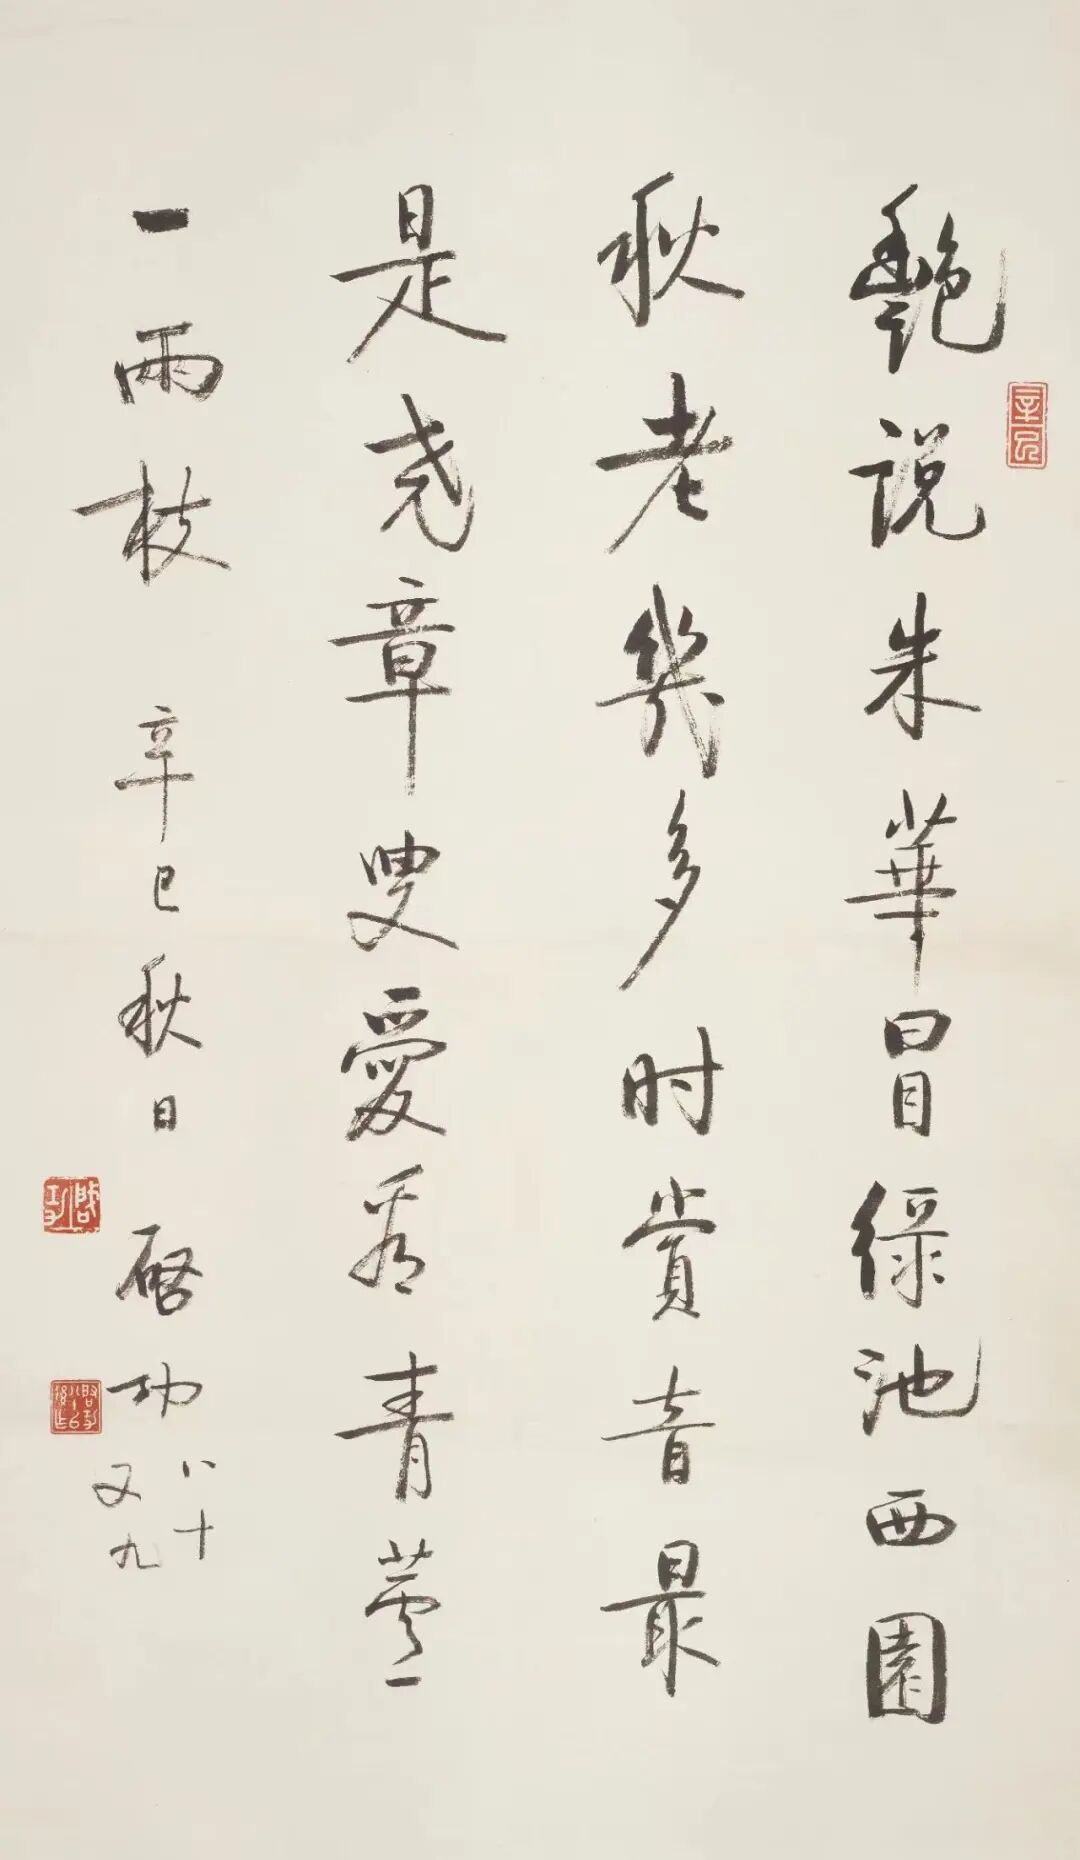 艷說朱華冒緑池西園
秋老幾多时賞音最
是尧章叟愛看青蘆
一兩枝 辛巳秋日 啓功
八十
又九